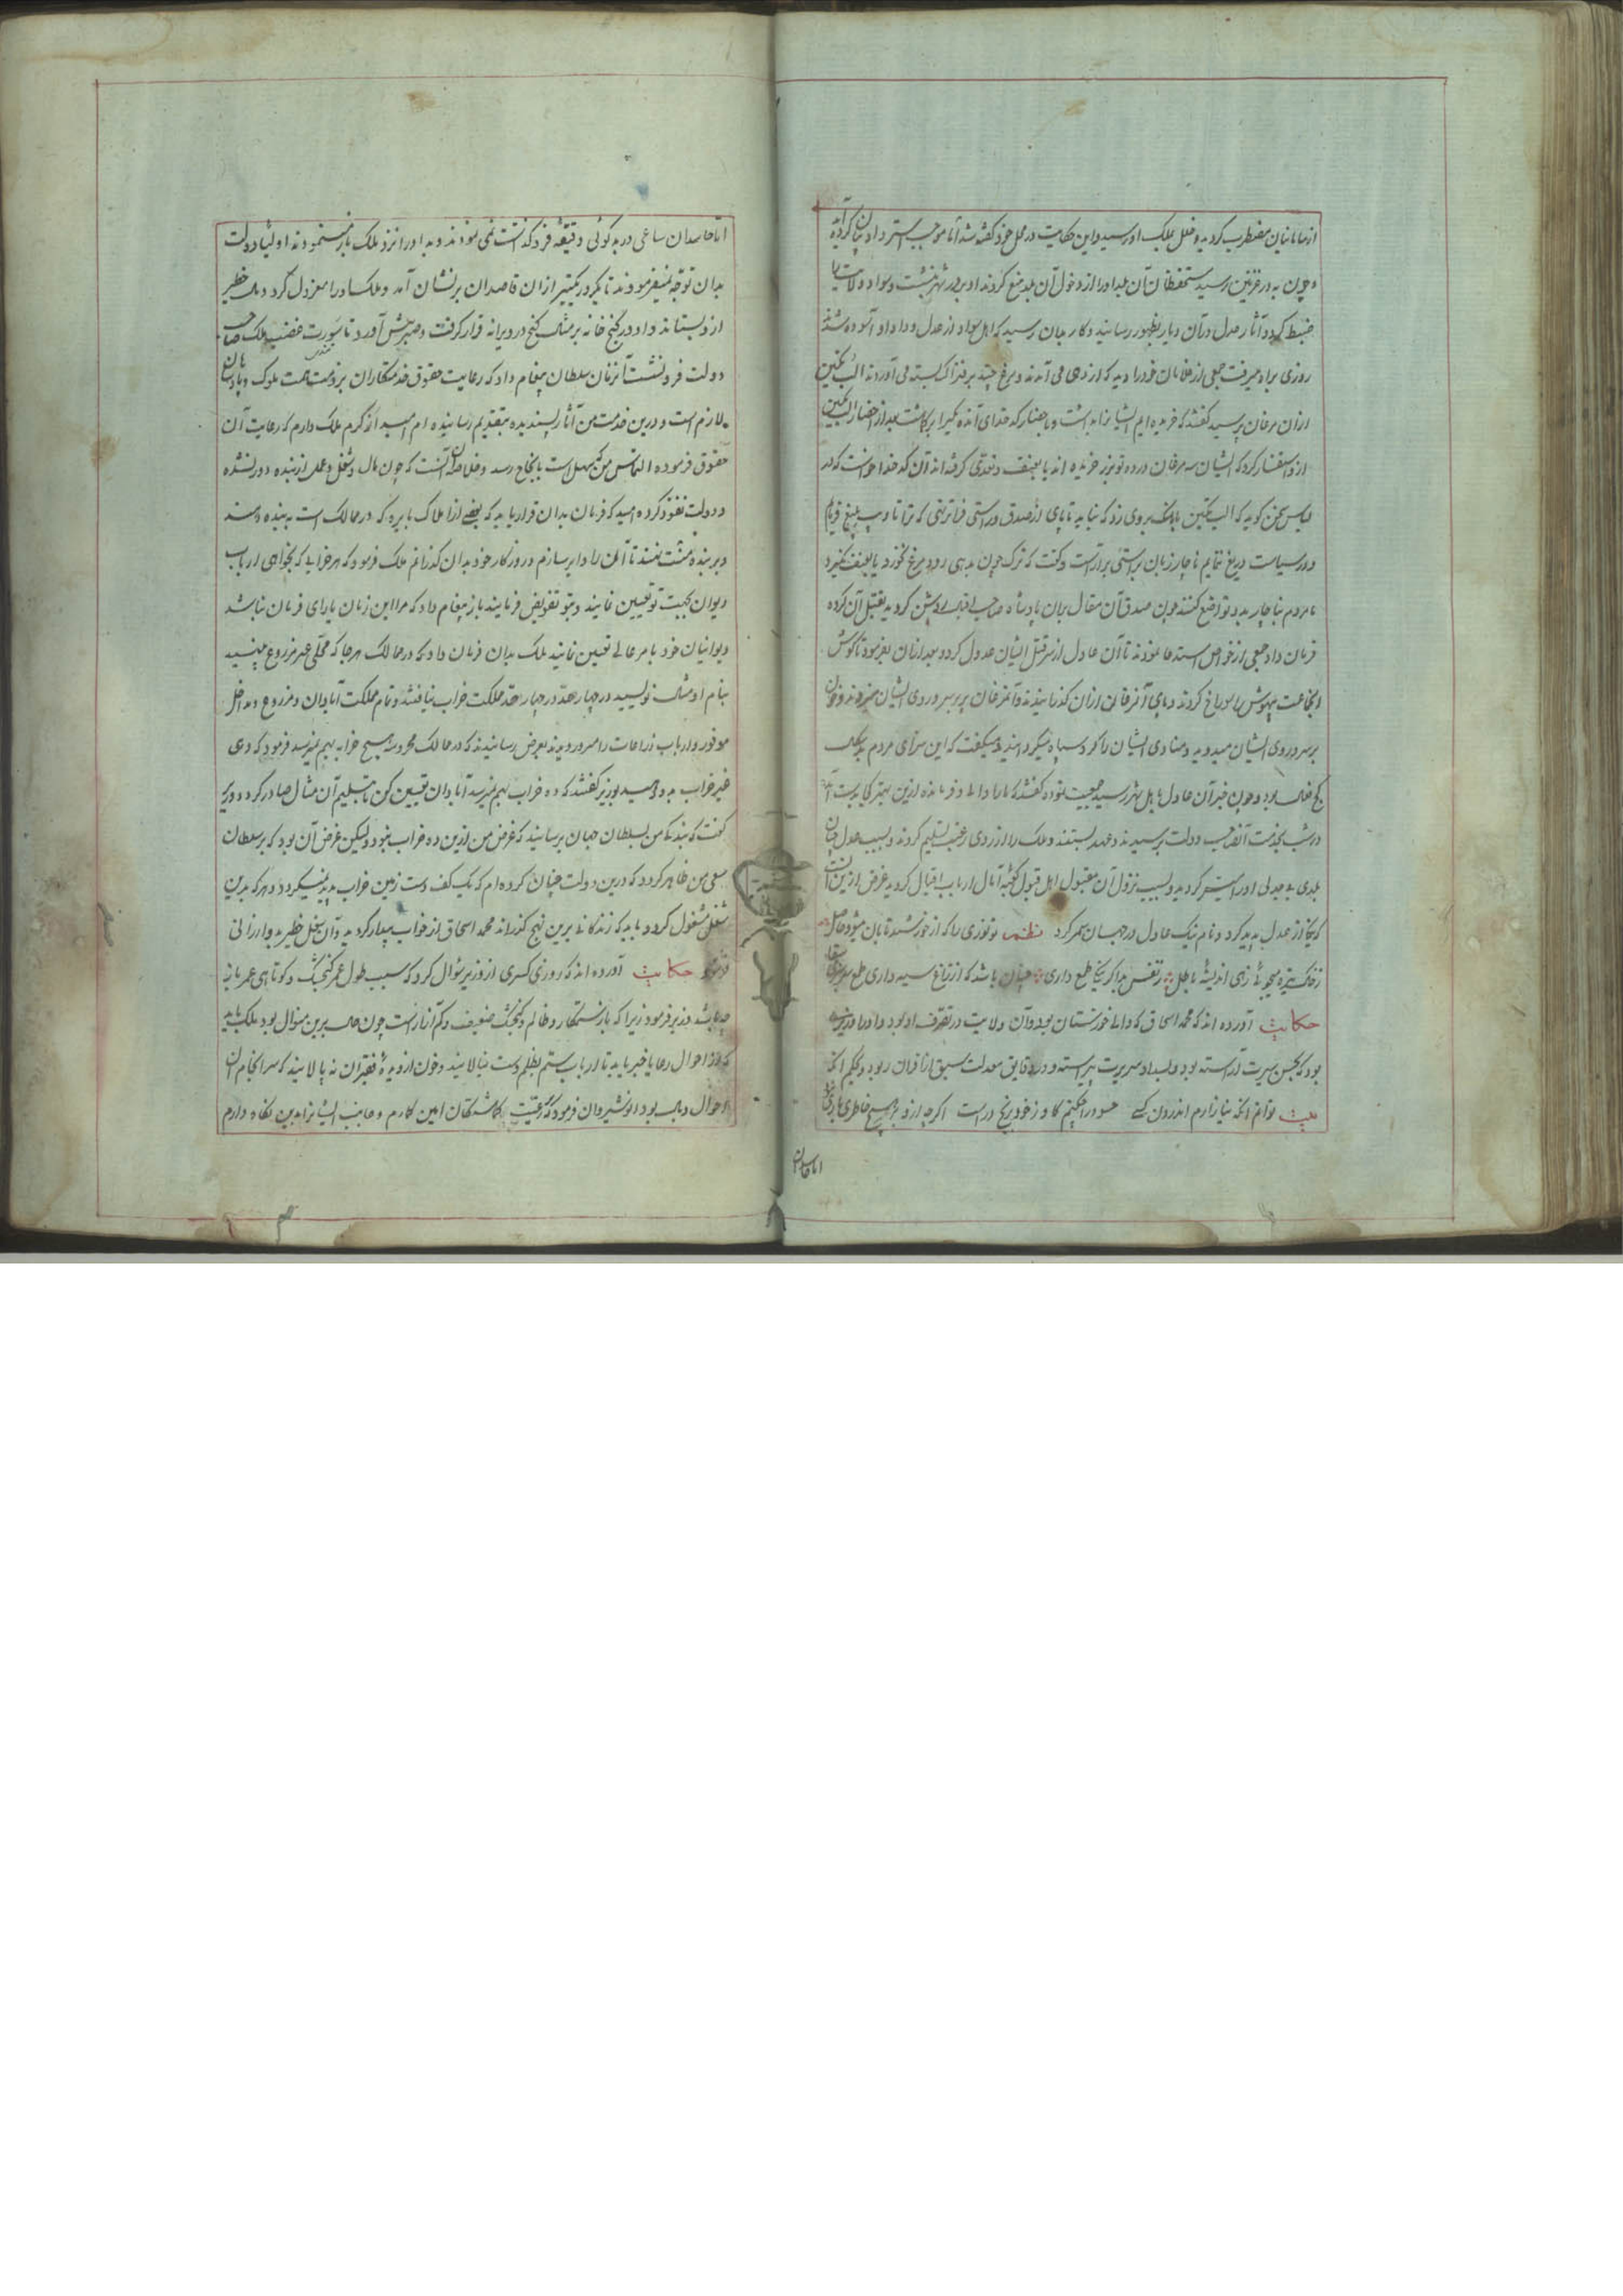 از سامانیان مضطرب گردید و خلل بملک او رسید و این حکایت در محل خود گفته شد اما موجب استرداد بیان کرده آید
و چون به در غزنین رسید مستحفظان آن بلد او را از دخول آن بلد منع کردند او بر در شهر بنشست و سواد ولایت را
ضبط کرد و آثار عدل در آن دیار بظهور رسانید و کار بدان رسید که اهل سواد از عدل و داد او آسوده شدند
روزی براه میرفت جمعی از غلامان خود را دید که از دهی می آمدند و مرغی چند بر فتراک بسته می آوردند الب تکین
ازان مرغان پرسید گفتند که خریده ایم ایشانرا بداشت و باحضار کدخدای آن ده یکی را بر گماشت بعد از احضار الب تکین
ازو استفسار کرد که ایشان مرغان در ده تو بزر خریده اند یا بعنف و تعدی گرفته اند آن کدخدا خواست که در
لباس سخن گوید که الب تکین بانگ بر وی زد که نباید تا پای از صدق و راستی فراتر نهی که ترا
و در سیاست دریغ ننمایم ناچار زبان براستی بیاراست و گفت که ترک چون بدهی رود مرغ نخرد یا بعنف بگیرد
یا مردم بناچار بدو تواضع کنند چون صدق آن مقال بران پادشاه صاحب اقبال روشن گردید بقتل آن گروه
فرمان داد جمعی از خواص استدعا نمودند تا آن عادل از سر قتل ایشان عدول کرد و بعد ازان بفرمود تا گوش
آن جماعت بیهوش را سوراخ کردند و پای آن مرغان ازان گذرانیدند و آن مرغان پر بر سر و روی ایشان میزدند و خون
بر سر و روی ایشان میدوید و منادی ایشان را گرد سپاه میگردانید و میگفت که این سزای مردم
کج فعال بود و چون خبر آن عادل باهل شهر رسید جمعیت نموده گفتند که ما را والی و فرمانده ازین بهتر کجا بدست آید
در شب بخدمت آن صاحب دولت پرسیدند و عهد بستند و ملک را از روی رغبت تسلیم کردند و بسبب عدل چنان
بلدی بی بدلی او را میسر گردید و بسبب نزول آن مقبول اهل قبول کعبه آمال ارباب اقبال گردید غرض ازین آنست
که بجا از عدل پدید کرد و نام نیک عادل در جهان سمر کرد نظم تو نوری را که از خورشید تابان میشود حاصل
ز خاک تیره میجویی زهی اندیشه باطل ز نفس بد اگر نیکی طمع داری چنان باشد که از زاغ سیه داری طمع
حکایت آورده اند که محمد اسحاق که والی خوزستان بود و آن ولایت در تصرف او بود و او را وزیری
بود که بحسن سیرت آراسته بود و بسداد سریرت پیراسته و در دقایق معدلت سبق از اقران ربود و بحکم آنکه
بیت توانم آنکه نیازارم اندرون کسی حسود را چکنم کاو ز خود برنج درست اگرچه ازو بر هیچ خاطری باری نبود
اما حاسدان
اما حاسدان ساعی در بدگوئی دقیقه فرو گذاشت نمی نمودند و بد او را نزد ملک باز مینمودند اولیاء دولت
بدان توجه نمیفرمودند تا یکروز یکتیر ازان قاصدان بر نشان آمد و ملک او را معزول کرد و مال خطیر
ازو بستاند و او در کنج خانه بر مثال گنج در ویرانه قرار گرفت و صبر پیش آورد تا سورت غضب ملک صاحب
دولت فرو نشست آنزمان سلطان پیغام داد که رعایت حقوق خدمتکاران بر ذمت همت ملوک و پادشاهان
لازم است و درین خدمت من آثار پسندیده بتقدیم رسانیده ام امید از کرم ملک دارم که رعایت آن
حقوق فرموده التماس من که سهل است بانجاح رسد و خلاصه آن آنست که چون مال و شغل و عمل از بنده دور شده
و دولت نفوذ کرده امید که فرمان بدان قرار یابد که بعضی از املاک بایره که در ممالک است به بنده دهند
و بر بنده منت نهند تا آنرا دایر سازم و روزگار خود بدان گذرانم ملک فرمود که هر خرابی که بخواهی ارباب
دیوان بجهت تو تعیین نمایند و بتو تفویض فرمایند باز پیغام داد که مرا این زمان یارای فرمان نباشد
دیوانیان خود با مر عالی تعیین نمایند ملک بدان فرمان داد که در ممالک هر جا که محلی غیر مزروع بینید
بنام او مثال نویسید در چهار حد در چهار حد مملکت خراب نیافتند و تمام مملکت آبادان و مزروع و مداخل
موفور و ارباب زراعات را مسرور دیدند بعرض رسانیدند که در ممالک محروسه هیچ خرابه بهم نمیرسد فرمود که دهی
خیر خراب بدو دهید بوزیر گفتند که ده خراب بهم نمیرسد آبادان تعیین کن تا بتسلیم آن مثال صادر گردد وزیر
گفت که بندگی من بسلطان جهان برسانید که غرض من ازین ده خراب نبود ولیکن غرض آن بود که بر سلطان
سعی من ظاهر گردد که درین دولت چنان کرده ام که یک کف دست زمین خراب پدید نمیگردد و هر که بدین
شغل مشغول گردد باید که زندگانی برین نهج گذراند محمد اسحاق از خواب بیدار گردید و آن شغل خطیر بدو ارزانی
فرمود حکایت آورده اند که روزی کسری از وزیر سؤال کرد که سبب طول عمر گنجشک و کوتاهی عمر باز
چه باشد وزیر فرمود زیرا که باز ستمکار و ظالم و گنجشک ضعیف و کم آزارست چون حال برین منوال بود ملک باید
که از احوال رعایا خبر یابد تا ارباب ستم بظلم دست نیالایند و خون از دیده فقیران نه پالایند که سرانجام آن
احوال وبال بود انوشیروان فرمود که رعیت را بگماشتگان امین گذارم و جانب ایشانرا بدین نگاه دارم